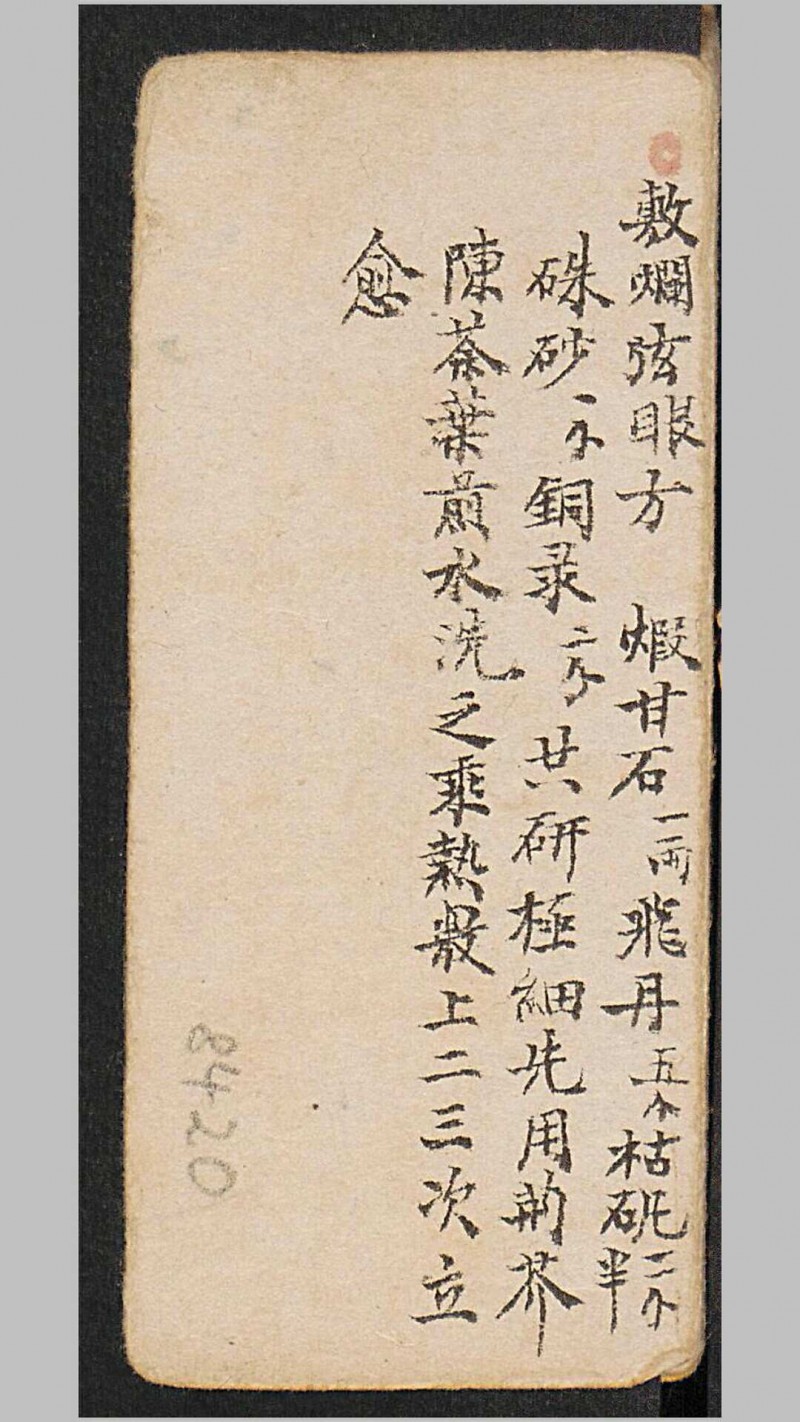 敷爛弦眼方 煆甘石一両飛丹五个枯矾二个半
硃砂一个銅录二个共研極細先用荊芥
陳茶葉煎水洗之乘熱敷上二三次立
愈
8420